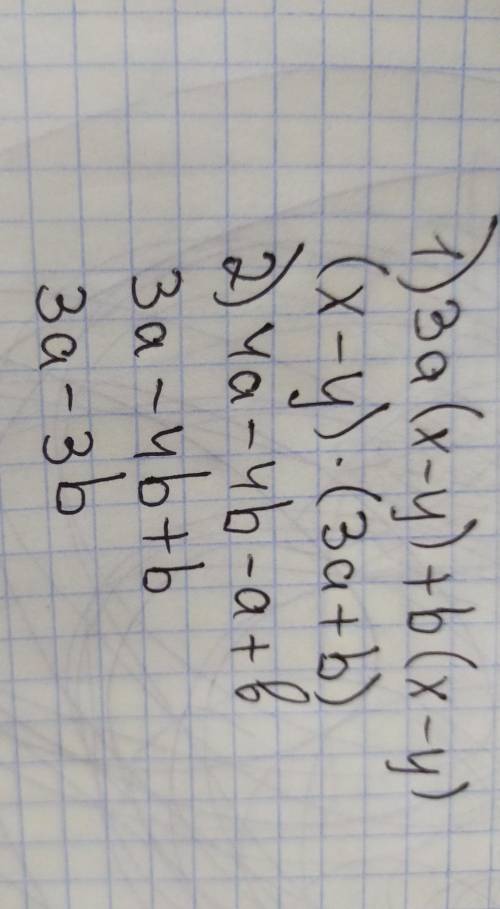 1) 3a(x-y)+b(x-y)
(x-y)·(3a+b)
2) 4a-4b-a+b
3a-4b+b
3a-3b